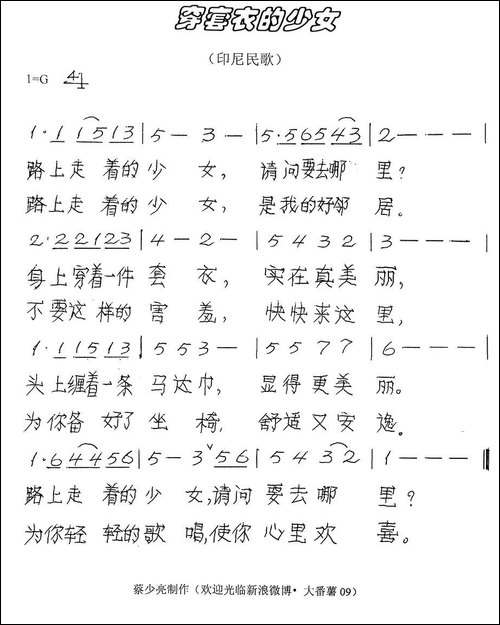 穿套衣的少女
（印尼民歌）
1=G 4/4
1·1 1513 | 5 — 3 — | 5·56543 | 2 — — — |
路上走 着的少 女， 请问要去哪 里？
路上走 着的少 女， 是我的好邻 居。
2·22123 | 4 — 2 — | 5 4 3 2 | 3 — — — |
身上穿着一件 套 衣， 实在真美 丽，
不要这 样的 害 羞， 快快来这 里，
1·11513 | 5 5 3 — | 5 5 7 7 | 6 — — — |
头上缠着一条 马达巾， 显得 更美 丽。
为你备 好了 坐 椅， 舒适又安 逸。
1·64456 | 5 — 3ˇ56 | 5 4 3 2 | 1 — — — ‖
路上走 着的少 女,请问 要去哪 里？
为你轻 轻的歌 唱,使你 心里欢 喜。
蔡少亮制作（欢迎光临新浪微博·大番薯 09）